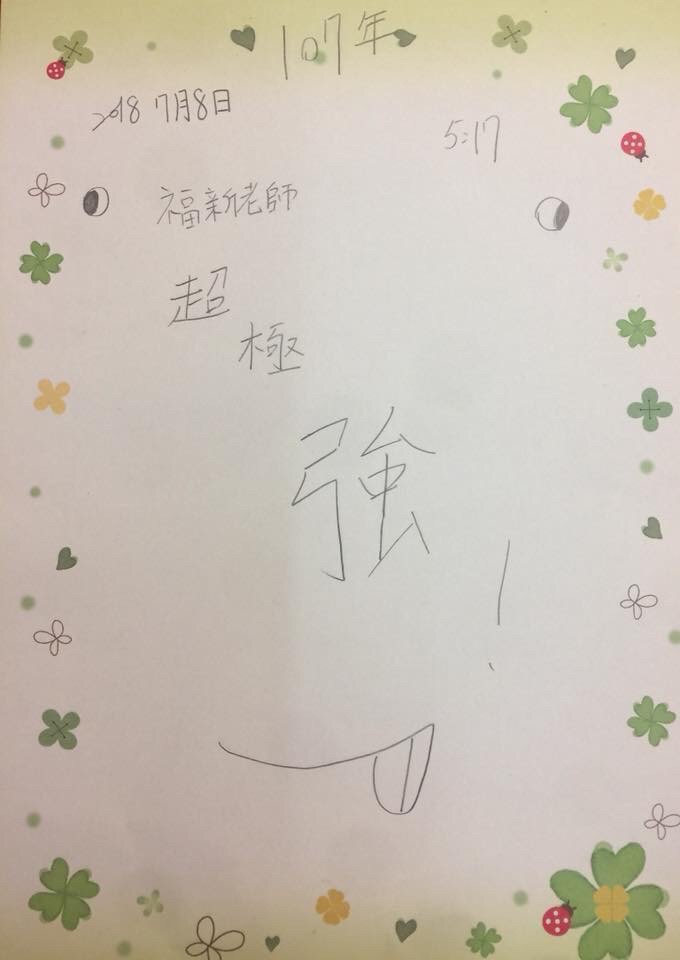 107年
2018 7月8日
5:17
福新老師
超
極
強
!